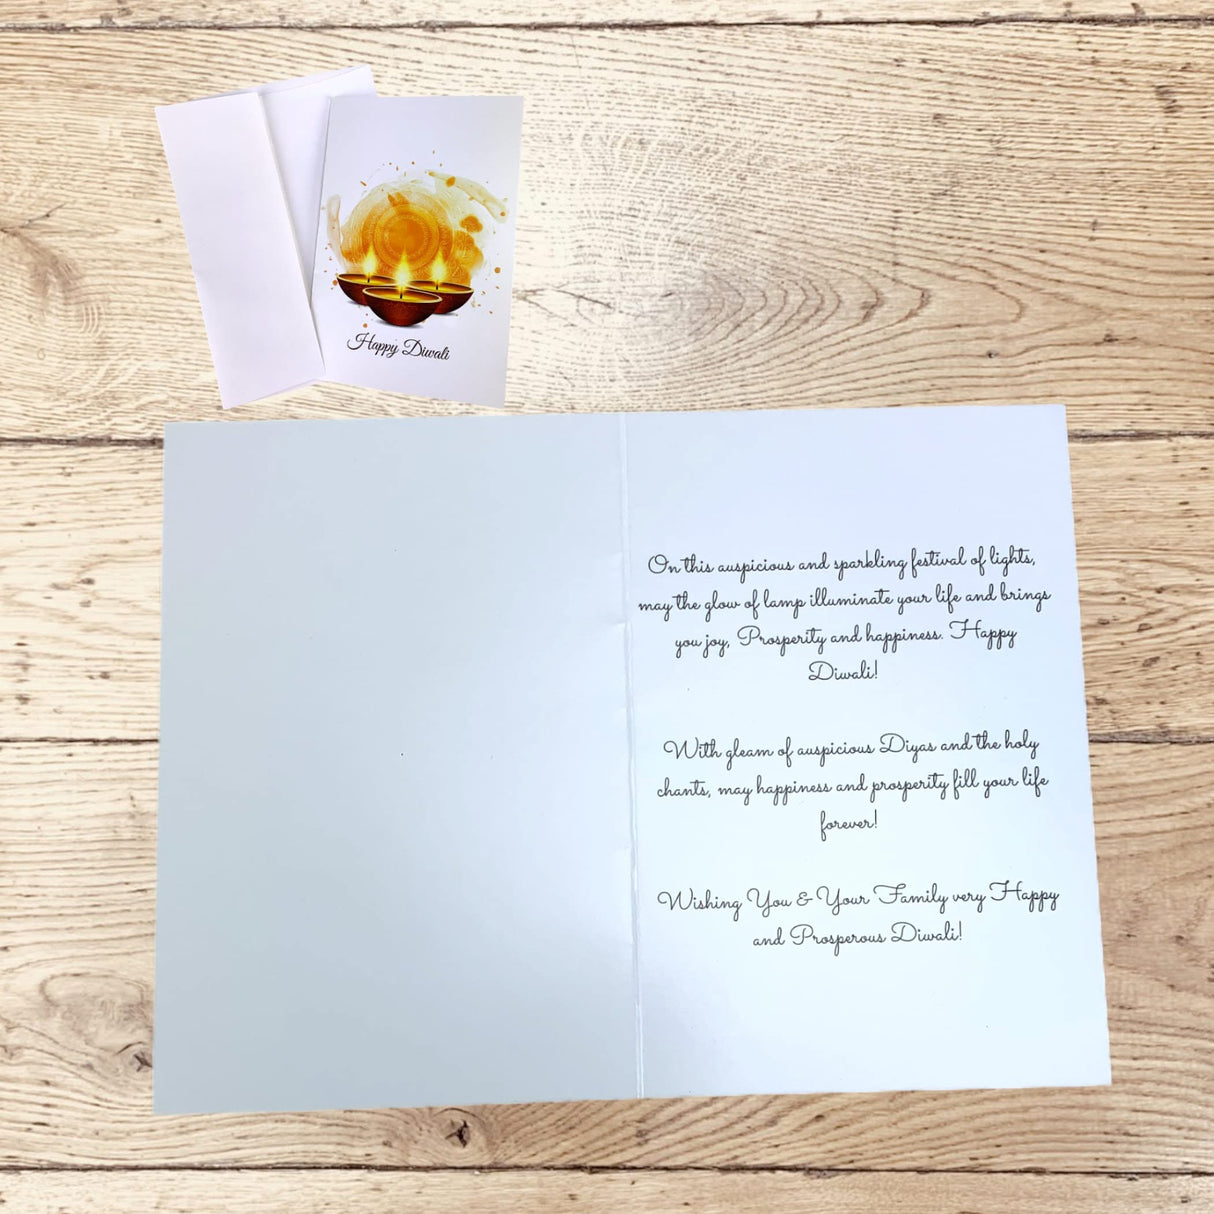 Happy Diwali
On this auspicious and sparkling festival of lights,
may the glow of lamp illuminate your life and brings
you joy, Prosperity and happiness. Happy
Diwali!
With gleam of auspicious Diyas and the holy
chants, may happiness and prosperity fill your life
forever!
Wishing You & Your Family very Happy
and Prosperous Diwali!